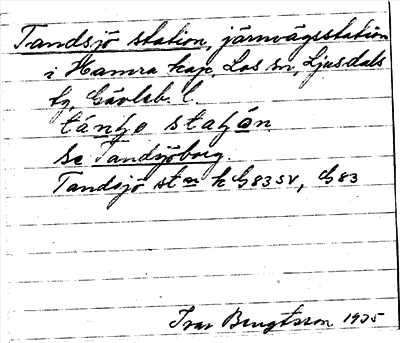 Tandsjö station, järnvägsstation
i Hamra kap, Los sn, Ljusdals
tg, Gävleb. l.
tánʃo staʃón
Se Tandsjöborg.
Tandsjö stn k G83SV, G83
Ivar Bengtsson 1935